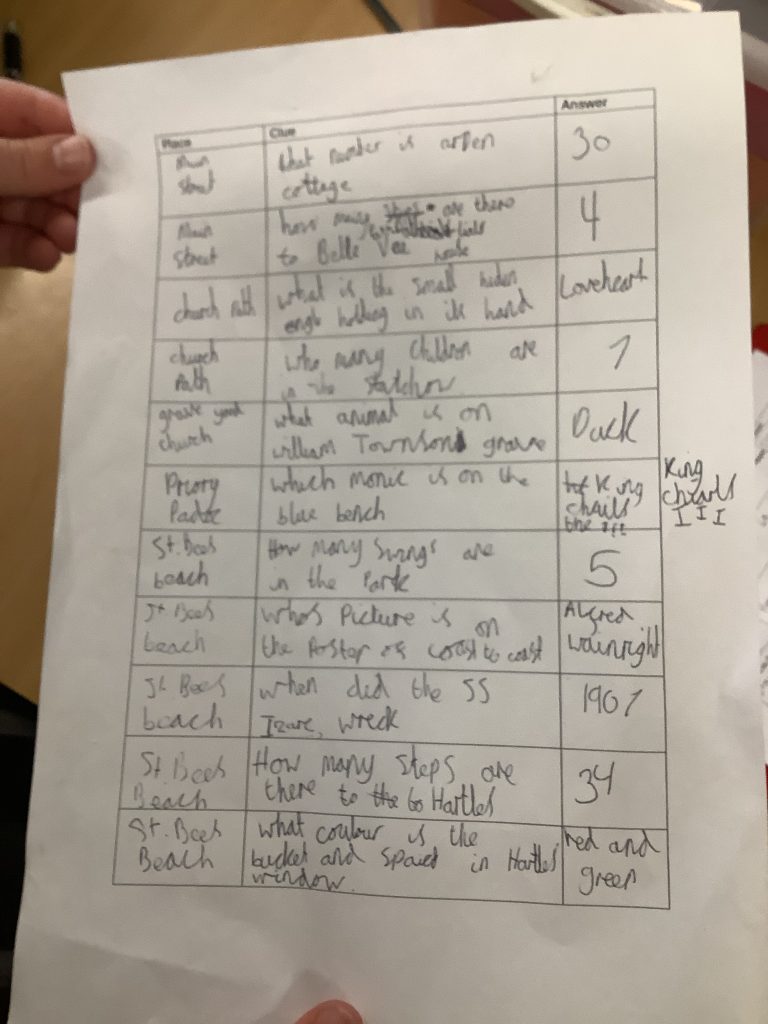 Place Clue Answer
Main
street
what number is arlen
cottage
30
Main
street
how many are there
to Belle Vee house
4
church Path
what is the small hiden
engle holling in its hand
Loveheart
church
Path
who many Children are
in the
7
grave yard
church
what animal is on
william Townson grave
Duck
Priory
which monic is on the
blue bench
King
chails
the III
King
charls
III
St. Bees
beach
How many Swings are
in the Park
5
St Bees
beach
who's Picture is on
the Poster of coast to coast
Alfred
wainright
St Bees
beach
when did the SS
Izare, wreck
1907
St Bees
Beach
How many steps are
there to the to Hartles
34
St. Bees
Beach
what coulour is the
bucket and spaed in Hartles
window.
red and
green